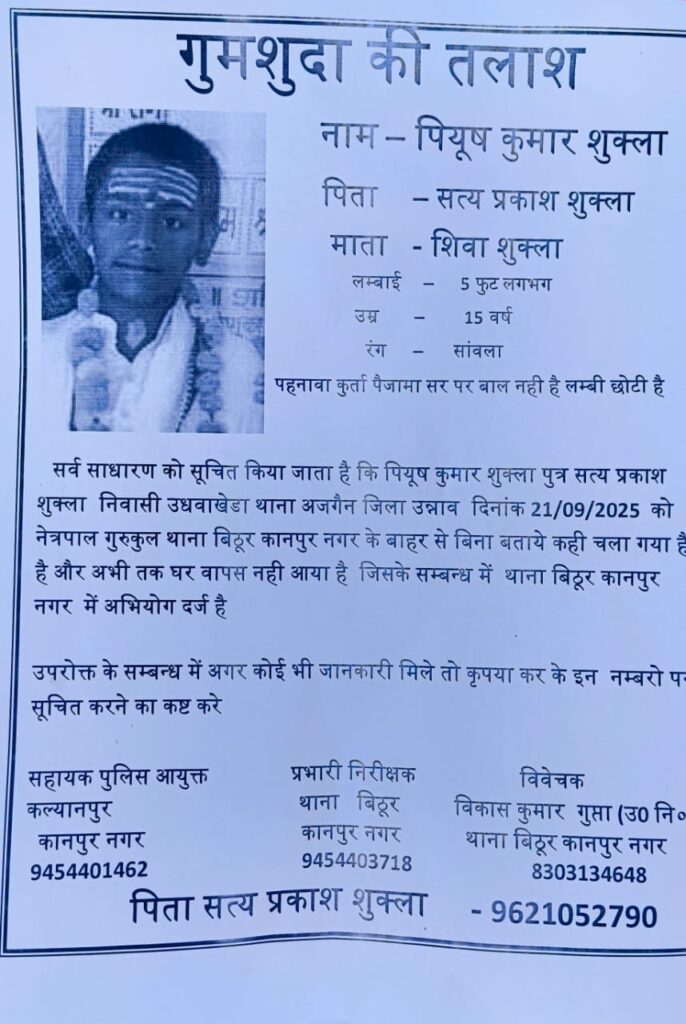 गुमशुदा की तलाश
नाम – पियूष कुमार शुक्ला
पिता – सत्य प्रकाश शुक्ला
माता - शिवा शुक्ला
लम्बाई – 5 फुट लगभग
उम्र – 15 वर्ष
रंग – सांवला
पहनावा कुर्ता पैजामा सर पर बाल नही है लम्बी छोटी है
सर्व साधारण को सूचित किया जाता है कि पियूष कुमार शुक्ला पुत्र सत्य प्रकाश
शुक्ला निवासी उधवाखेडा थाना अजगैन जिला उन्नाव दिनांक 21/09/2025 को
नेत्रपाल गुरुकुल थाना बिठूर कानपुर नगर के बाहर से बिना बताये कही चला गया है
है और अभी तक घर वापस नही आया है जिसके सम्बन्ध में थाना बिठूर कानपुर
नगर में अभियोग दर्ज है
उपरोक्त के सम्बन्ध में अगर कोई भी जानकारी मिले तो कृपया कर के इन नम्बरो पर
सूचित करने का कष्ट करे
सहायक पुलिस आयुक्त
कल्यानपुर
कानपुर नगर
9454401462
प्रभारी निरीक्षक
थाना बिठूर
कानपुर नगर
9454403718
विवेचक
विकास कुमार गुप्ता (उ0 नि०
थाना बिठूर कानपुर नगर
8303134648
पिता सत्य प्रकाश शुक्ला - 9621052790